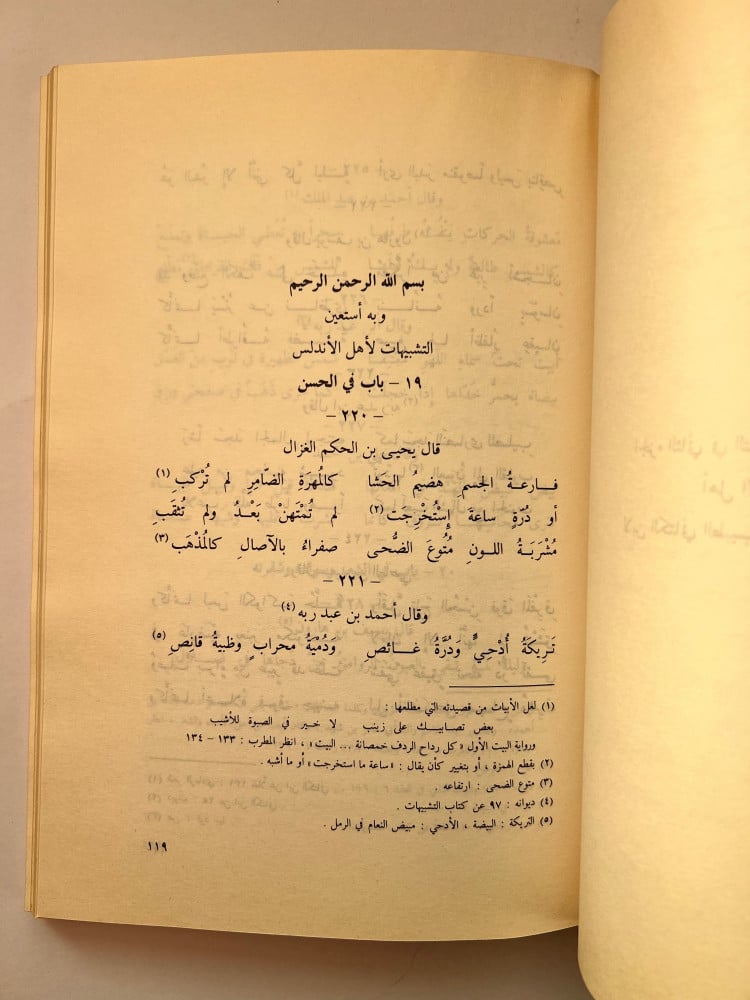 بسم الله الرحمن الرحيم
وبه أستعين
التشبيهات لأهل الأندلس
١٩ – باب في الحسن
– ٢٢٠ –
قال يحيى بن الحكم الغزال
فارعةُ الجسمِ هضيمُ الحَشا كالمُهرَةِ الضّامِرِ لم تُرْكبِ (١)
أو دُرّةٍ ساعةَ إسْتُخْرِجَت (٢) لم تُمْتَهنْ بَعْدُ ولم تُثقَبِ
مُشْرَبَةُ اللونِ مُتُوعَ الضُّحى صفراءُ بالآصالِ كالمُذْهَب (٣)
– ٢٢١ –
وقال أحمد بن عبد ربه (٤)
تَرِيكَةُ أُدْحِيٍّ وَدُرَّةُ غائصٍ وَدُمْيَةُ محرابٍ وظبيةُ قانِصِ (٥)
(١) لعل الأبيات من قصيدته التي مطلعها :
بعض تصابيك على زينب لا خير في الصبوة للأشيب
ورواية البيت الأول « كل رداح الردف خمصانة ... البيت » ، انظر المطرب : ١٣٣ – ١٣٤
(٢) بقطع الهمزة ، أو بتغيير كأن يقال : « ساعة ما استخرجت » أو ما أشبه .
(٣) متوع الضحى : ارتفاعه .
(٤) ديوانه : ٩٧ عن كتاب التشبيهات .
(٥) التريكة : البيضة ، الأدحي : مبيض النعام في الرمل .
١١٩